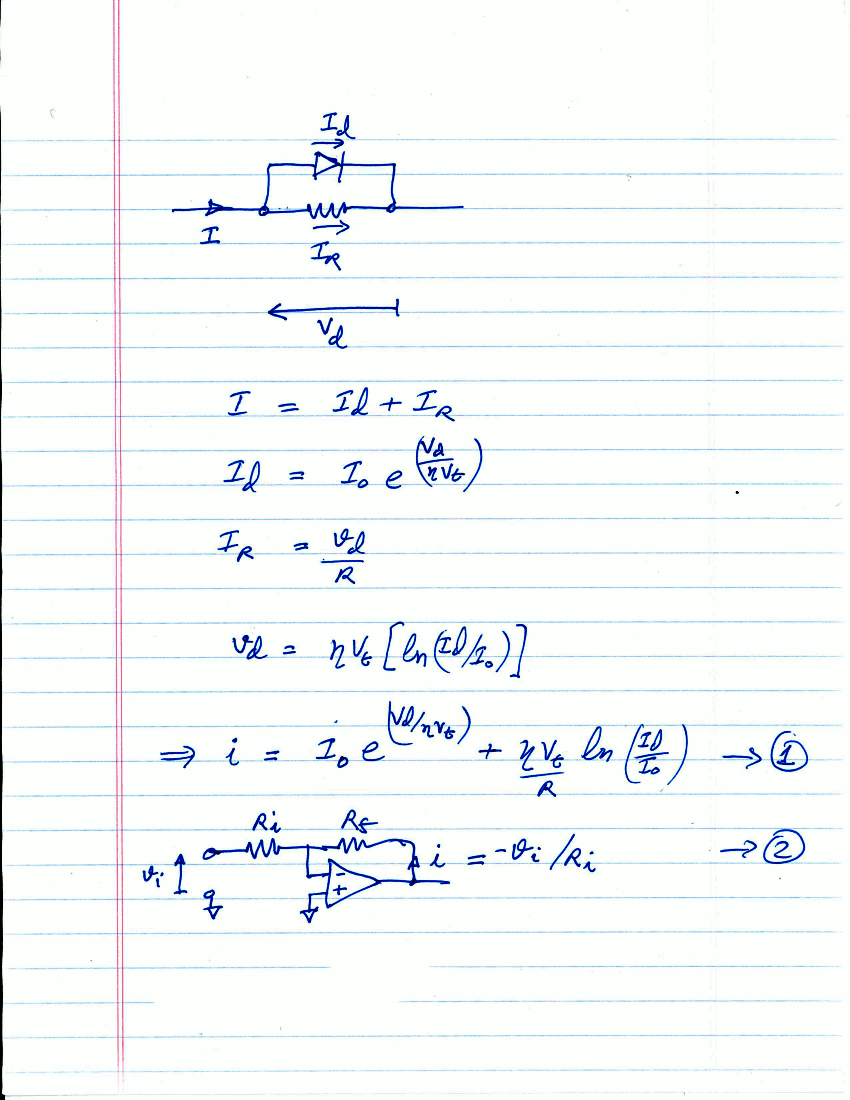 Id
I
IR
Vd
I = Id + IR
Id = I₀ e^(Vd/ηVt)
IR = vd/R
vd = ηVt [ln(Id/I₀)]
⇒ i = I₀ e^(Vd/ηVt) + ηVt/R ln(Id/I₀) → ①
Ri Rf
vi - + i = -vi/Ri → ②